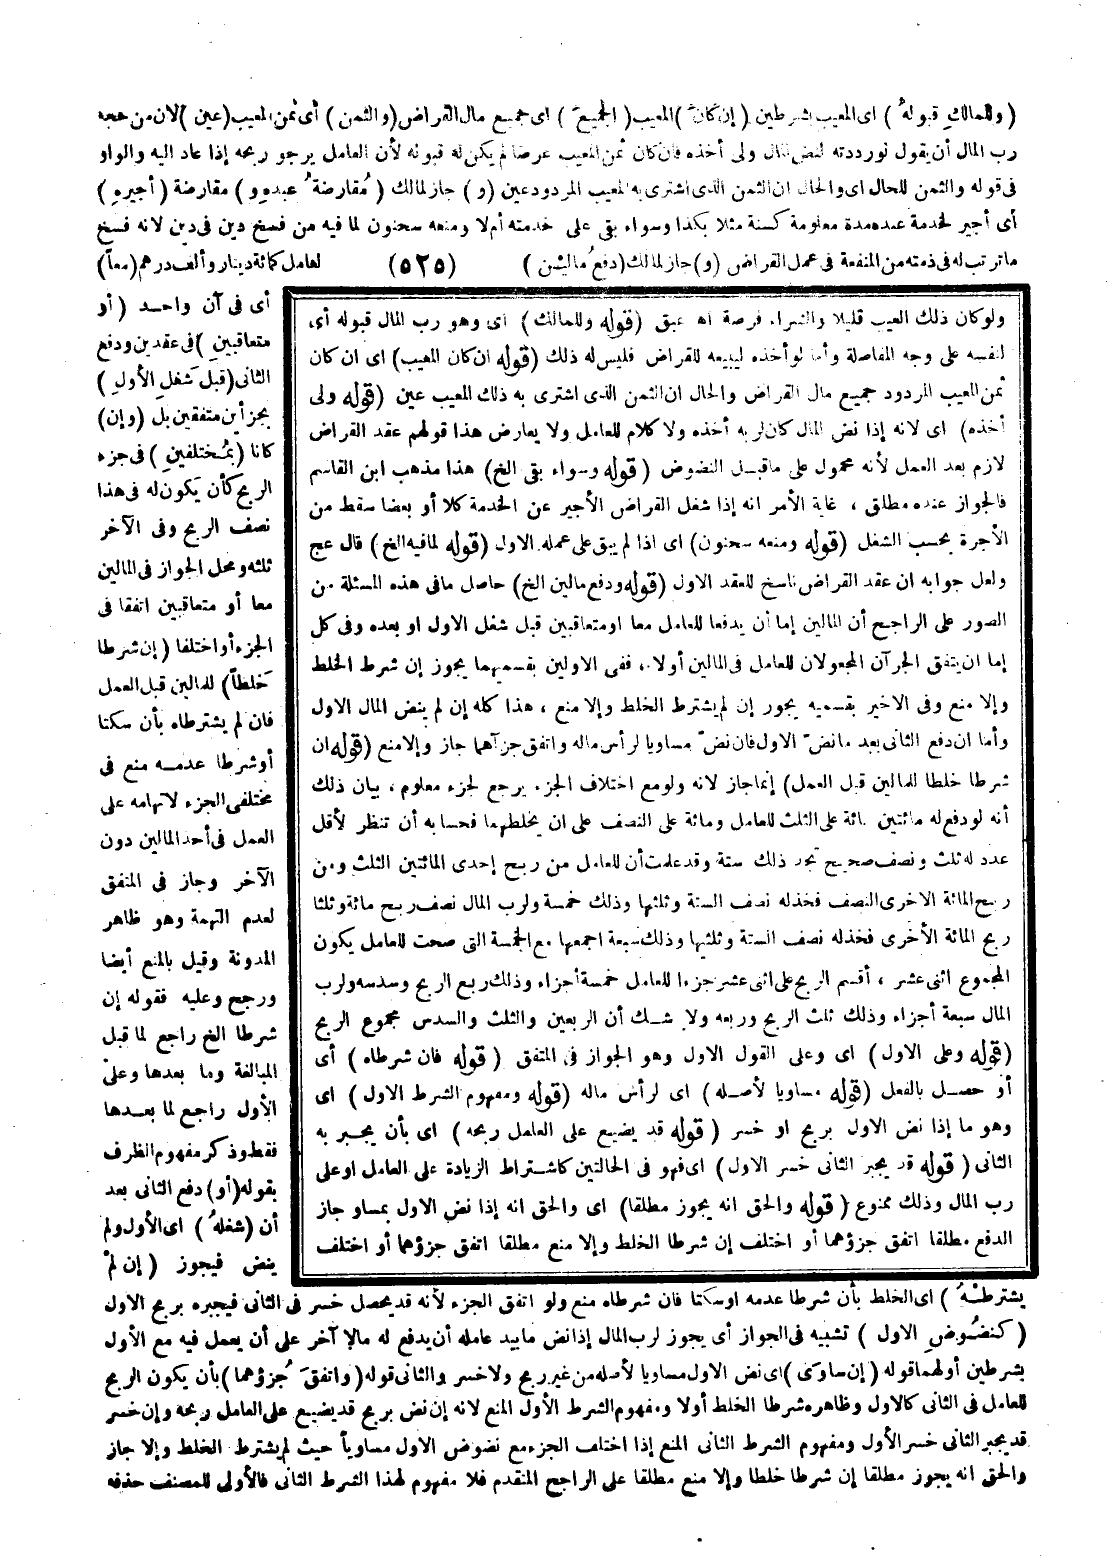 (وللمالك قبوله) اى المعيب بشرطين (إن كان) المعيب (الجميع) اى جميع مال القراض (والثمن) أى ثمن المعيب (عين) لان من حجة
رب المال أن يقول لو رددته لنض المال ولى أخذه فان كان ثمن المعيب عرضا لم يكن له قبوله لأن العامل يرجو ربحه إذا عاد اليه والواو
فى قوله والثمن للحال اى والحال ان الثمن الذى اشترى به المعيب المردود عين (و) جاز لمالك (مُقارضةُ عبدِهِ و) مقارضة (أجيرِهِ)
أى أجير لخدمة عنده مدة معلومة كسنة مثلا بكذا وسواء بقى على خدمته أم لا ومنعه سحنون لما فيه من فسخ دين فى دين لانه فسخ
ما ترتب له فى ذمته من المنفعة فى عمل القراض (و) جاز لمالك (دفعُ مالين) (٥٢٥) لعامل كمائة دينار وألف درهم (معاً)
أى فى آن واحد (أو
متعاقبينِ) فى عقدين ودفع
الثانى (قبلَ شغلِ الأولِ)
بجزأين متفقين بل (وإن)
كانا (بمُختلفينِ) فى جزء
الربح كأن يكون له فى هذا
نصف الربح وفى الآخر
ثلثه ومحل الجواز فى المالين
معا أو متعاقبين اتفقا فى
الجزء أو اختلفا (إن شرطا
خَلطاً) للمالين قبل العمل
فان لم يشترطاه بأن سكتا
أو شرطا عدمه منع فى
مختلفى الجزء لاتهامه على
العمل فى أحد المالين دون
الآخر وجاز فى المتفق
لعدم التهمة وهو ظاهر
المدونة وقيل بالمنع أيضا
ورجح وعليه فقوله إن
شرطا الخ راجع لما قبل
المبالغة وما بعدها وعلى
الأول راجع لما بعدها
فقط وذكر مفهوم الظرف
بقوله (أو) دفع الثانى بعد
أن (شغلهُ) اى الأول ولم
ينض فيجوز (إن لم
يشترطْهُ) اى الخلط بأن شرطا عدمه او سكتا فان شرطاه منع ولو اتفق الجزء لأنه قد يحصل خسر فى الثانى فيجبره بربح الاول
(كنضُوضِ الاول) تشبيه فى الجواز أى يجوز لرب المال إذا نض ما بيد عامله أن يدفع له مالا آخر على أن يعمل فيه مع الأول
بشرطين أولهما قوله (إن ساوَى) اى نض الاول مساويا لأصله من غير ربح ولا خسر والثانى قوله (واتفقَ جُزؤهما) بأن يكون الربح
للعامل فى الثانى كالاول وظاهره شرطا الخلط أولا ومفهوم الشرط الأول المنع لانه إن نض بربح قد يضيع على العامل ربحه وإن خسر
قد يجبر الثانى خسر الأول ومفهوم الشرط الثانى المنع إذا اختلف الجزء مع نضوض الاول مساوياً حيث لم يشترط الخلط وإلا جاز
والحق انه يجوز مطلقا إن شرطا خلطا وإلا منع مطلقا على الراجح المتقدم فلا مفهوم لهذا الشرط الثانى فالأولى للمصنف حذفه
ولو كان ذلك العيب قليلا والشراء فرصة اه عبق (قوله وللمالك) اى وهو رب المال قبوله أى
لنفسه على وجه المفاصلة وأما لو أخذه ليبيعه للقراض فليس له ذلك (قوله ان كان المعيب) اى ان كان
ثمن المعيب المردود جميع مال القراض والحال ان الثمن الذى اشترى به ذلك المعيب عين (قوله ولى
أخذه) اى لانه إذا نض المال كان لربه أخذه ولا كلام للعامل ولا يعارض هذا قولهم عقد القراض
لازم بعد العمل لأنه محمول على ما قبل النضوض (قوله وسواء بقى الخ) هذا مذهب ابن القاسم
فالجواز عنده مطلق ، غاية الأمر انه إذا شغل القراض الأجير عن الخدمة كلا أو بعضا سقط من
الأجرة بحسب الشغل (قوله ومنعه سحنون) اى اذا لم يبق على عمله الاول (قوله لما فيه الخ) قال عج
ولعل جوابه ان عقد القراض ناسخ للعقد الاول (قوله ودفع مالين الخ) حاصل ما فى هذه المسئلة من
الصور على الراجح أن المالين إما أن يدفعا للعامل معا او متعاقبين قبل شغل الاول او بعده وفى كل
إما ان يتفق الجزآن المجعولان للعامل فى المالين أولا ، ففى الاولين بقسميهما يجوز إن شرط الخلط
وإلا منع وفى الاخير بقسميه يجوز إن لم يشترط الخلط وإلا منع ، هذا كله إن لم ينض المال الاول
وأما ان دفع الثانى بعد ما نض الاول فان نض مساويا لرأس ماله واتفق جزآهما جاز وإلا منع (قوله ان
شرطا خلطا للمالين قبل العمل) إنما جاز لانه ولو مع اختلاف الجزء يرجع لجزء معلوم ، بيان ذلك
أنه لو دفع له مائتين مائة على الثلث للعامل ومائة على النصف على ان يخلطهما فحسابه أن تنظر لأقل
عدد له ثلث ونصف صحيح تجد ذلك ستة وقد علمت أن للعامل من ربح إحدى المائتين الثلث ومن
ربح المائة الاخرى النصف فخذ له نصف الستة وثلثها وذلك خمسة ولرب المال نصف ربح مائة وثلثا
ربح المائة الأخرى فخذ له نصف الستة وثلثيها وذلك سبعة اجمعها مع الخمسة التى صحت للعامل يكون
المجموع اثنى عشر ، أقسم الربح على اثنى عشر جزءا للعامل خمسة أجزاء وذلك ربع الربح وسدسه ولرب
المال سبعة أجزاء وذلك ثلث الربح وربعه ولا شك أن الربعين والثلث والسدس مجموع الربح
(قوله وعلى الاول) اى وعلى القول الاول وهو الجواز فى المتفق (قوله فان شرطاه) أى
أو حصل بالفعل (قوله مساويا لأصله) اى لرأس ماله (قوله ومفهوم الشرط الاول) اى
وهو ما إذا نض الاول بربح او خسر (قوله قد يضيع على العامل ربحه) اى بأن يجبر به
الثانى (قوله قد يجبر الثانى خسر الاول) اى فهو فى الحالتين كاشتراط الزيادة على العامل او على
رب المال وذلك ممنوع (قوله والحق انه يجوز مطلقا) اى والحق انه إذا نض الاول بمساو جاز
الدفع مطلقا اتفق جزؤهما أو اختلف إن شرطا الخلط وإلا منع مطلقا اتفق جزؤهما أو اختلف